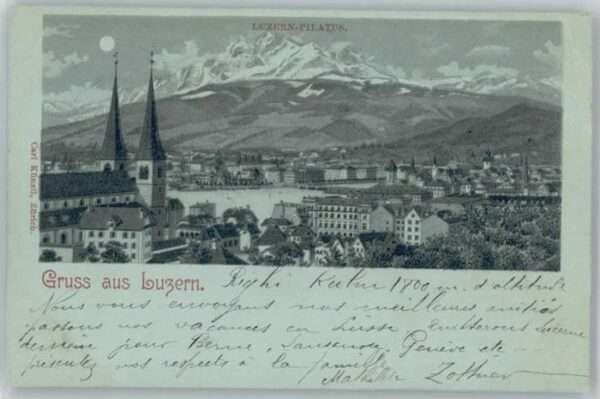 LUZERN-PILATUS.
Carl Künzli, Zürich.
Gruss aus Luzern. Righi Kulm 1800 m. d'altitude
Nous vous envoyons nos meilleures amitiés
passons nos vacances en Suisse quitterons Lucerne
demain pour Berne, Lausanne, Genève etc -
présentez vos respects à la famille
Mathilde Zottner